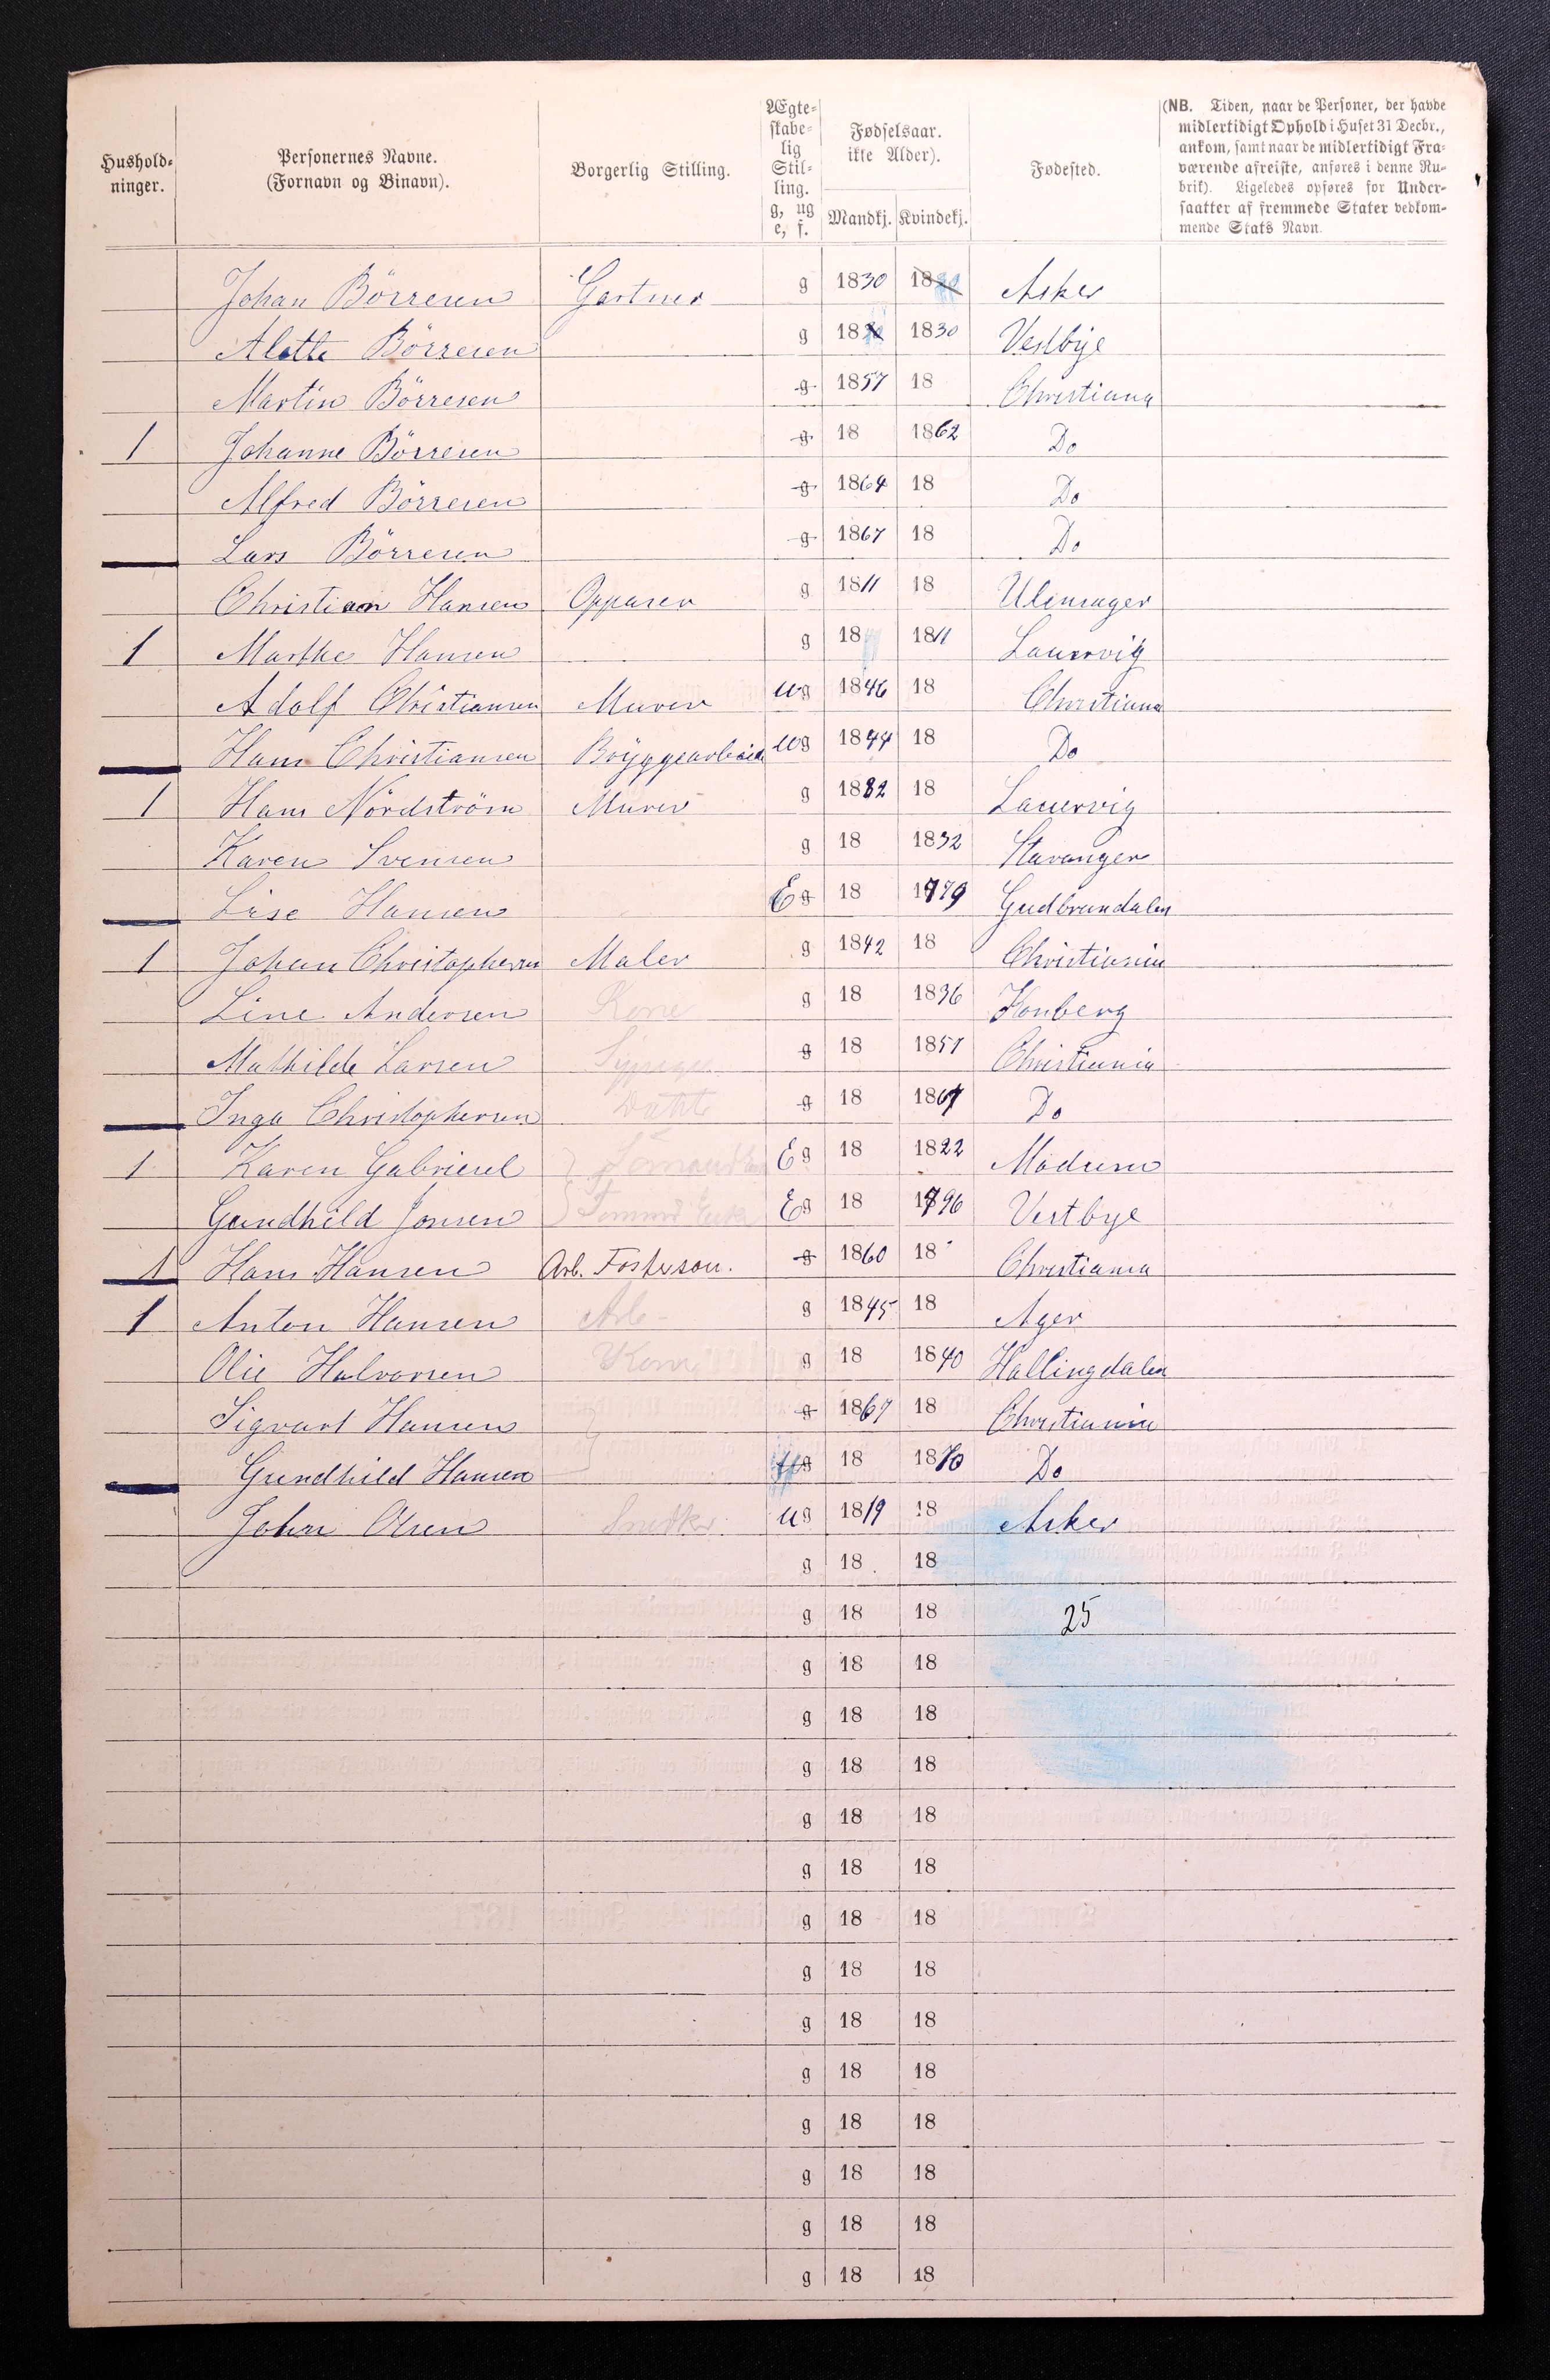 Hushold-
ninger.
Personernes Navne.
(Fornavn og Binavn).
Borgerlig Stilling.
Ægte-
skabe-
lig
Stil-
ling.
g, ug
e, f.
Fødselsaar.
ikke Alder).
Mandkj. Kvindekj.
Fødested.
(NB. Tiden, naar de Personer, der havde
midlertidigt Ophold i Huset 31 Decbr.,
ankom, samt naar de midlertidigt Fra-
værende afreiste, anføres i denne Ru-
brik). Ligeledes opføres for Under-
saatter af fremmede Stater vedkom-
mende Stats Navn.
Johan Börresen Gartner g 1830 18 Asker
Alette Börresen g 18 1830 Vestbye
Martin Börresen g 1857 18 Christiana
1 Johanne Börresen g 18 1862 Do
Alfred Börresen g 1864 18 Do
Lars Börresen g 1867 18 Do
Christian Hansen Oppaser g 1811 18 Ulensager
1 Marthe Hansen g 18 1811 Laurvig
Adolf Christiansen Murer ug 1846 18 Christiana
Hans Christiansen Bryggearbeid ug 1844 18 Do
1 Hans Nördström Murer g 1832 18 Laurvig
Karen Svensen g 18 1832 Stavanger
Lise Hansen Eg 18 1779 Gudbrandalen
1 Johan Christophersen Maler g 1842 18 Christiania
Line Andersen Kone g 18 1836 Honberg
Mathilde Larsen g 18 1857 Christiania
Inga Christophersen Datte g 18 1867 Do
1 Karen Gabrielsel Eg 18 1822 Modum
Gundhild Jonsen Eg 18 1796 Vestbye
1 Hans Hansen Arb. Fosterson. g 1860 18 Christiania
1 Anton Hansen Arb g 1845 18 Ager
Olie Halvorsen Kone g 18 1840 Hallingdalen
Sigvart Hansen g 1867 18 Christiania
Gundhild Hansen g 18 1870 Do
Johan Olsen Snedker ug 1819 18 Asker
g 18 18
g 18 18 25
g 18 18
g 18 18
g 18 18
g 18 18
g 18 18
g 18 18
g 18 18
g 18 18
g 18 18
g 18 18
g 18 18
g 18 18
g 18 18